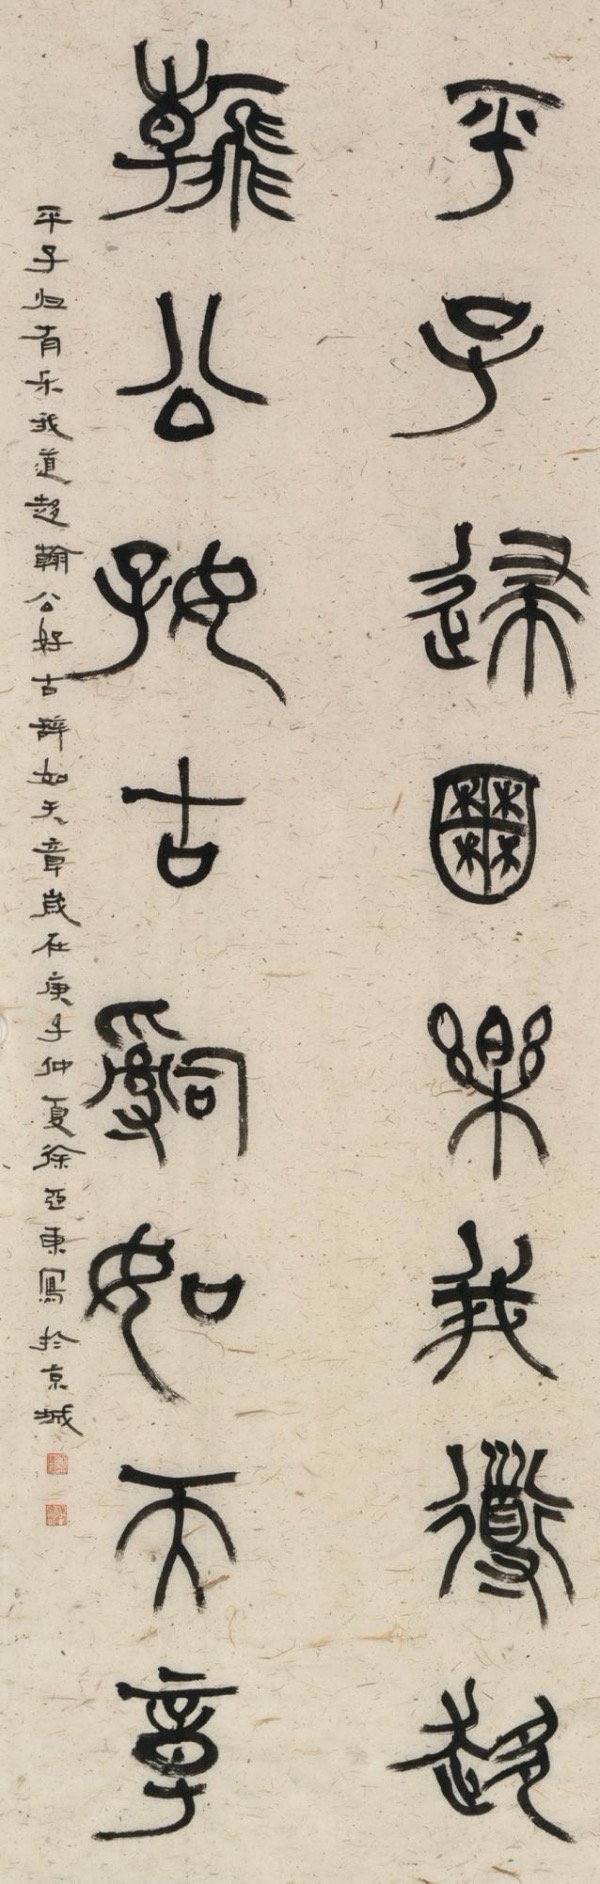 平子歸囿樂我道趍
翰公好古辭如天章
平子归有乐我道趍翰公好古辞如天章歲在庚子仲夏徐亞東寫於京城